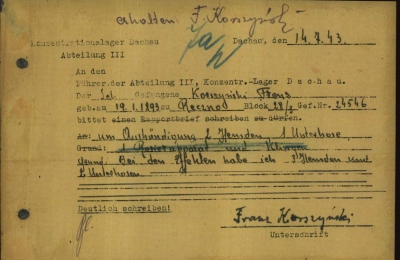 erhalten: F. Korszyński
Konzentrationslager Dachau
Dachau, den 14.7.43.
Abteilung III
An den
Führer der Abteilung III, Konzentr.-Lager Dachau.
Der Sch. Gefangene Korszynski Franz
geb.am 19.1.1893 zu Block 28/3 Gef.Nr. 24546
bittet einen Exportbrief schreiben zu dürfen.
um Aushändigung 2 Hemden, 1 Unterhose,
Grund: 1 Rasierapparat und Klingen
Bei den Effekten habe ich 3 Hemden und
2 Unterhosen.
Deutlich schreiben!
Franz Korszyński
Unterschrift